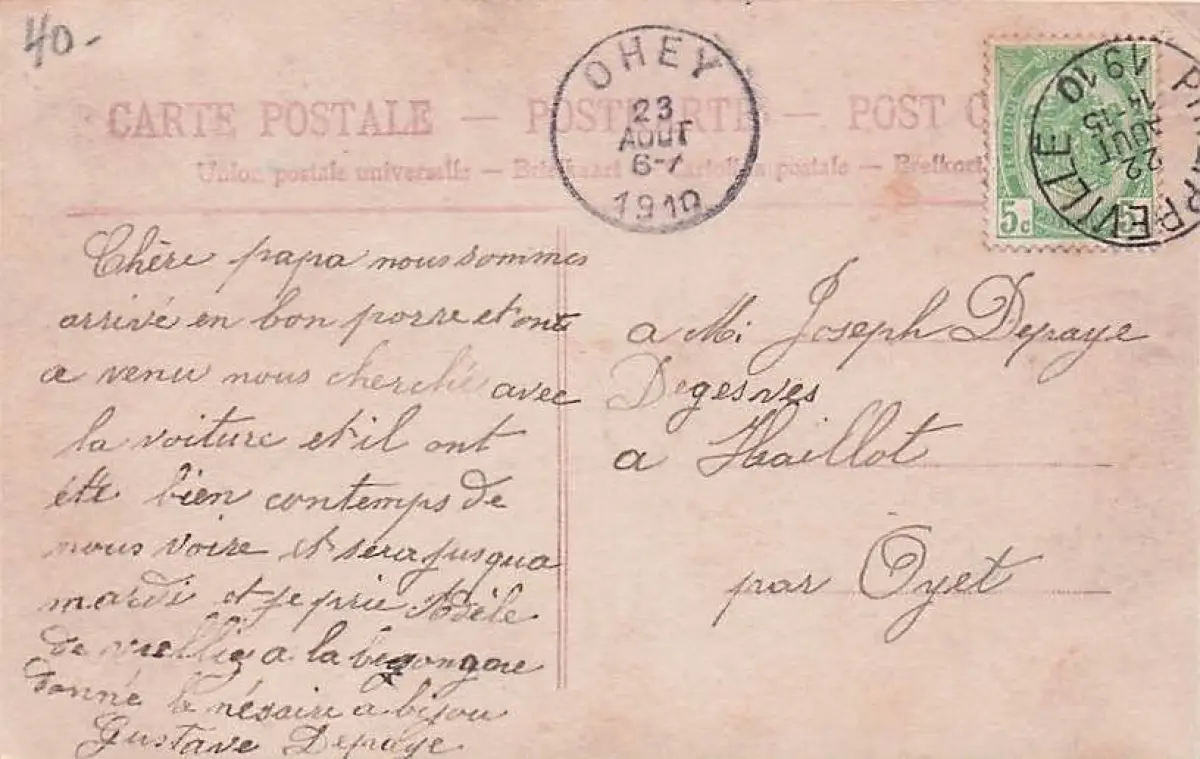 40-
CARTE POSTALE — POSTKARTE — POST C
Union postale universelle — Briefkaart — Cartolina postale — Brefkort
OHEY
23
AOUT
6-7
1910
5c 5
PHILIPPEVILLE
22
AOUT
15-15
1910
Chère papa nous sommes
arrivé en bon porre et ont
a venu nous cherché avec
la voiture et il ont
été bien contemps de
nous voire et sera jusqua
mardi et je prie Adèle
de vrellie a la begongne
donné le nésaire a bijou
Gustave Depaye
a Mr Joseph Depaye
Degesves
a Haillot
par Oyet